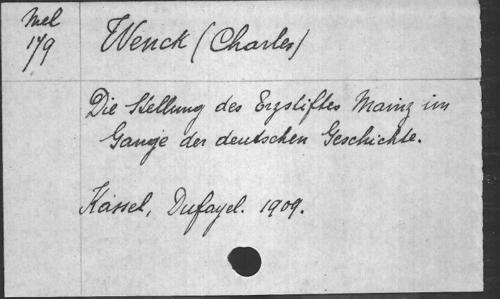 Mel
179
Wenck (Charles)
Die Stellung des Erzstiftes Mainz im
Gange der deutschen Geschichte.
Kassel, Dufayel. 1909.